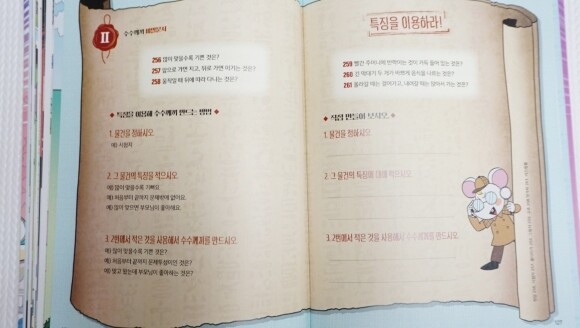 II
수수께끼 비법문서
256 많이 맞을수록 기쁜 것은?
257 앞으로 가면 지고, 뒤로 가면 이기는 것은?
258 움직일 때 뒤에 따라 다니는 것은?
특징을 이용해 수수께끼 만드는 방법
1. 물건을 정하시오.
예) 시험지
2. 그 물건의 특징을 적으시오.
예) 많이 맞을수록 기뻐요.
예) 처음부터 끝까지 문제밖에 없어요.
예) 많이 맞으면 부모님이 좋아해요.
3. 2번에서 적은 것을 사용해서 수수께끼를 만드시오.
예) 많이 맞을수록 기쁜 것은?
예) 처음부터 끝까지 문제투성이인 것은?
예) 맞고 왔는데 부모님이 좋아하는 것은?
특징을 이용하라!
259 빨간 주머니에
260 긴 막대기 두 개가
261 올라갈 때는 걸어가고, 내려갈 때는 앉아서 가는 것은?
직접 만들어 보시오.
1. 물건을 정하시오.
2. 그 물건의 특징에 대해 적으시오.
3. 2번에서 적은 것을 사용해서 수수께끼를 만드시오.